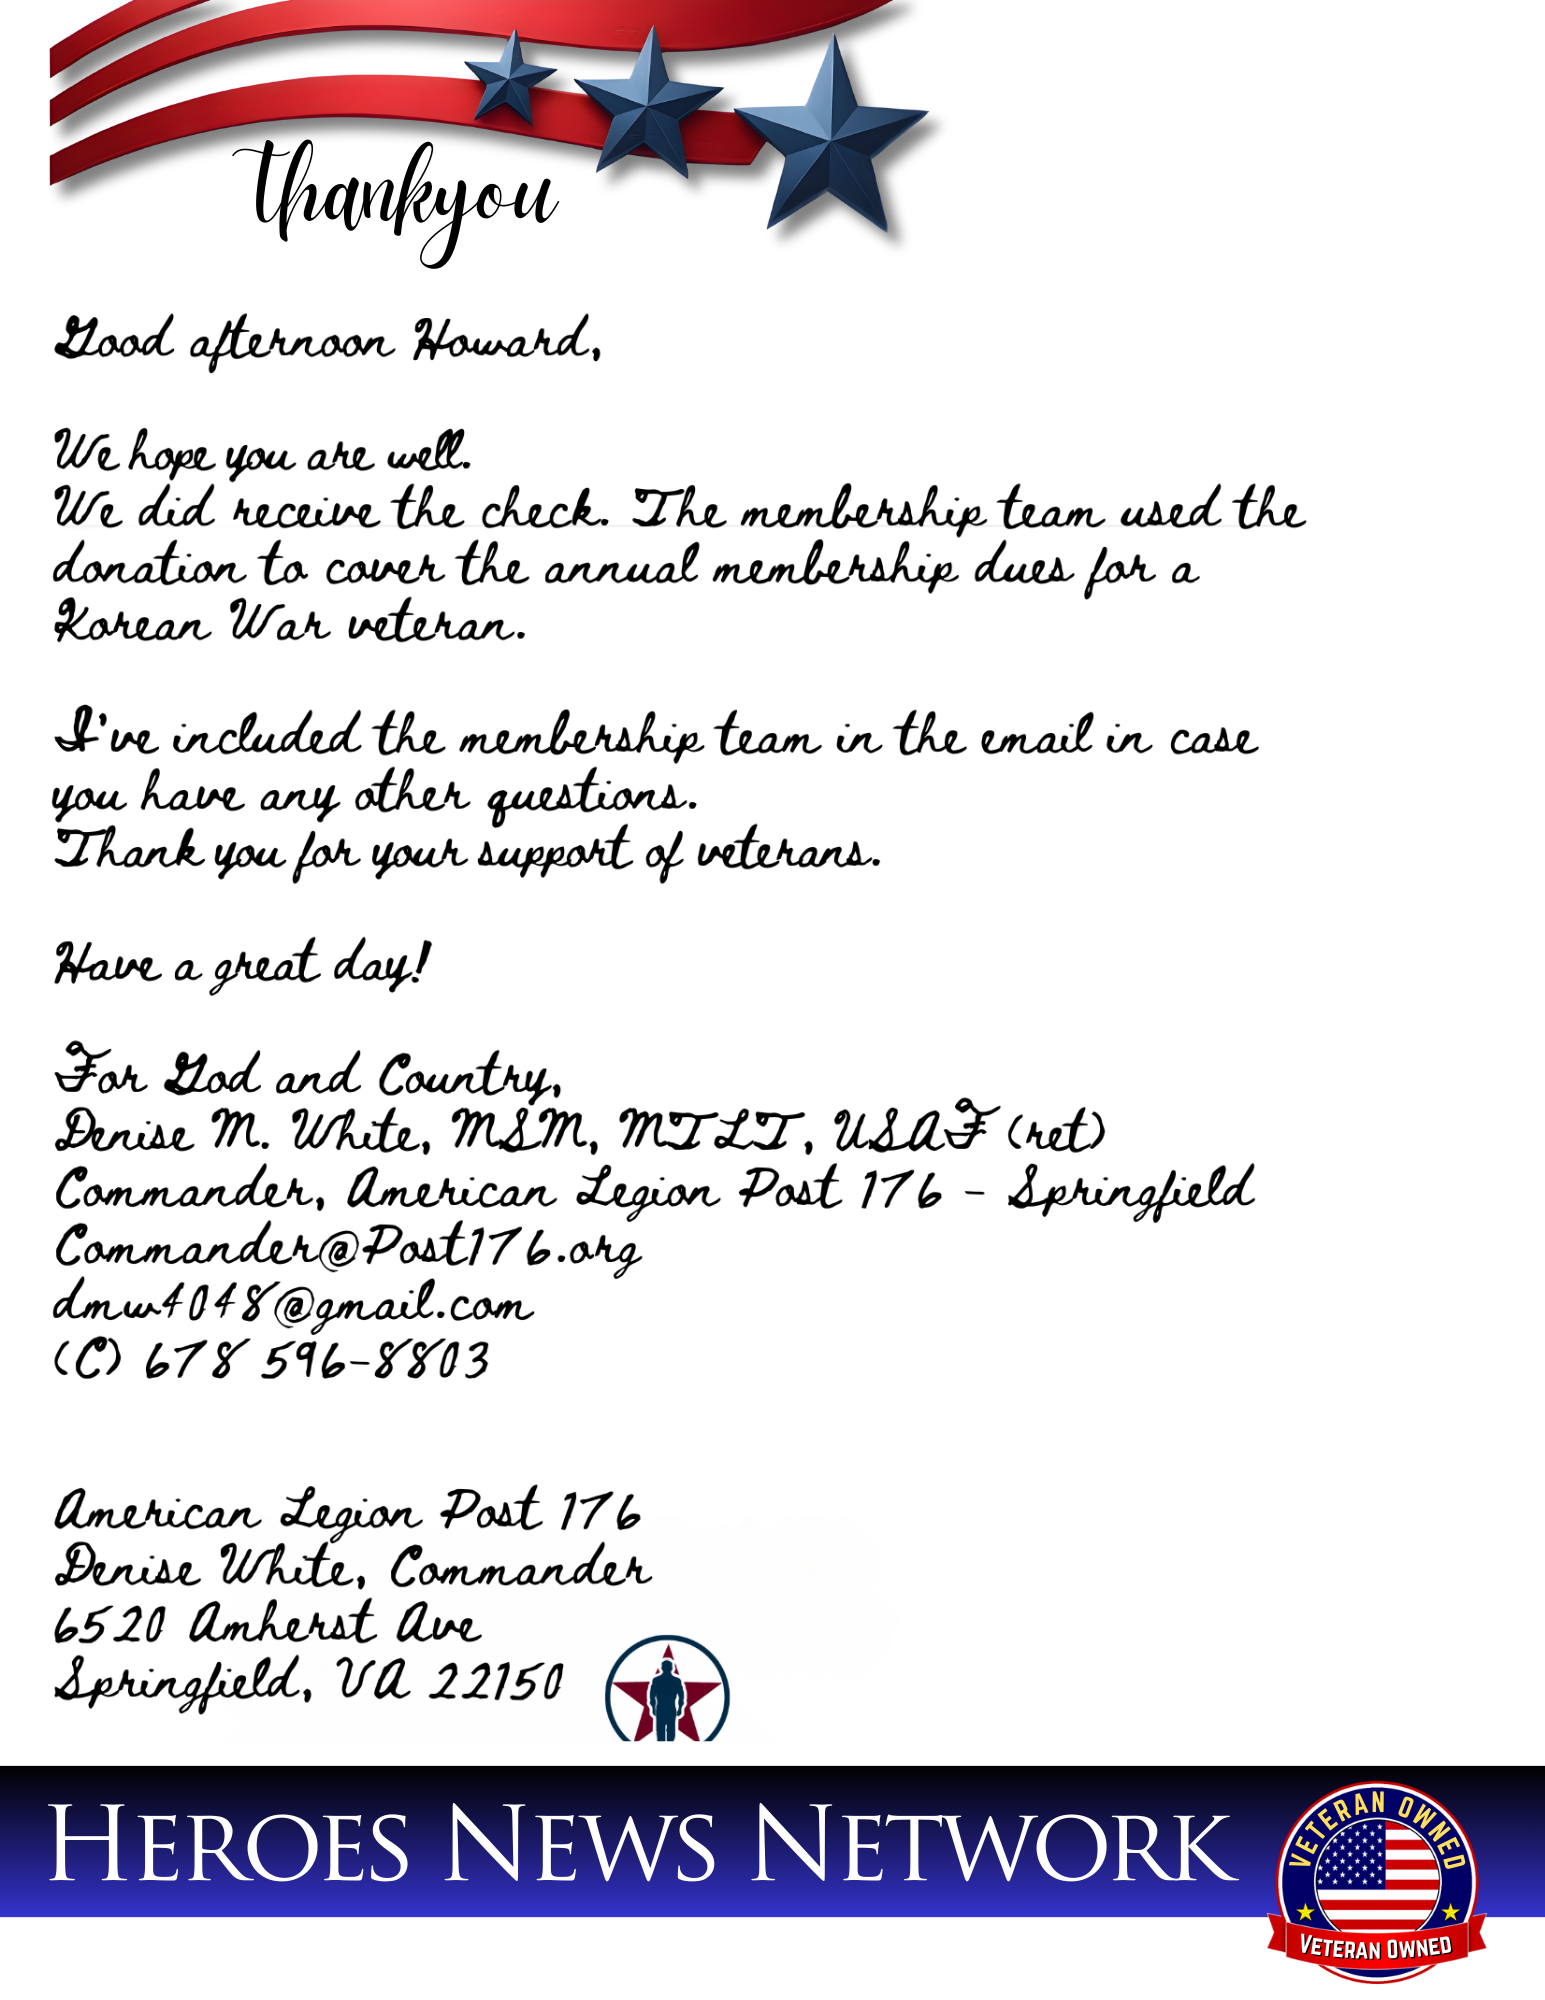 thankyou
Good afternoon Howard,
We hope you are well.
We did receive the check. The membership team used the
donation to cover the annual membership dues for a
Korean War veteran.
I've included the membership team in the email in case
you have any other questions.
Thank you for your support of veterans.
Have a great day!
For God and Country,
Denise M. White, MSM, MTLT, USAF (ret)
Commander, American Legion Post 176 - Springfield
Commander@Post176.org
dmw4048@gmail.com
(C) 678 596-8803
American Legion Post 176
Denise White, Commander
6520 Amherst Ave
Springfield, VA 22150
HEROES NEWS NETWORK
VETERAN OWNED
VETERAN OWNED